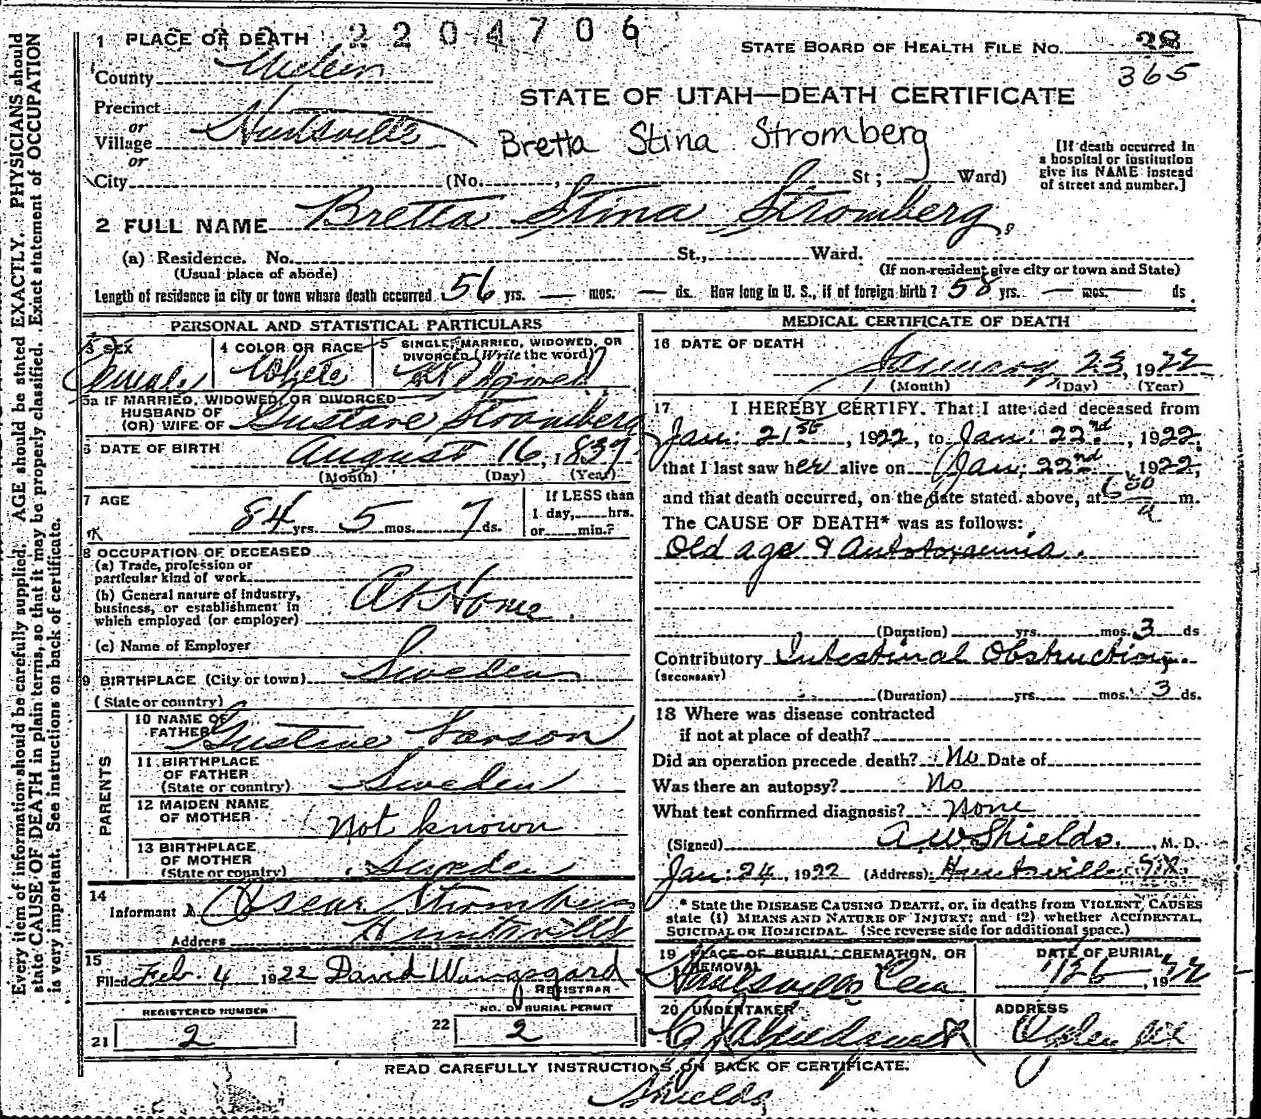 2204706
1 PLACE OF DEATH
STATE BOARD OF HEALTH FILE NO. 28
365
County Weber
STATE OF UTAH—DEATH CERTIFICATE
Precinct
or
Village Huntsville
or
Bretta Stina Stromberg
[If death occurred in a hospital or institution give its NAME instead of street and number.]
City (No. , St ; Ward)
2 FULL NAME Bretta Stina Stromberg,
(a) Residence. No. St., Ward.
(Usual place of abode) (If non-resident give city or town and State)
Length of residence in city or town where death occurred 56 yrs. — mos. — ds. How long in U. S., if of foreign birth? 58 yrs. — mos. ds.
PERSONAL AND STATISTICAL PARTICULARS
3 SEX Female
4 COLOR OR RACE White
5 SINGLE, MARRIED, WIDOWED, OR DIVORCED (Write the word) Widowed
5a IF MARRIED, WIDOWED, OR DIVORCED
HUSBAND OF
(OR) WIFE OF Gustave Stromberg
6 DATE OF BIRTH August 16, 1837
(Month) (Day) (Year)
7 AGE 84 yrs. 5 mos. 7 ds.
If LESS than
1 day, hrs.
or min.?
8 OCCUPATION OF DECEASED
(a) Trade, profession or
particular kind of work
(b) General nature of industry,
business, or establishment in
which employed (or employer) At Home
(c) Name of Employer
9 BIRTHPLACE (City or town) Sweden
(State or country)
PARENTS
10 NAME OF FATHER Gustave Larson
11 BIRTHPLACE
OF FATHER
(State or country) Sweden
12 MAIDEN NAME
OF MOTHER Not known
13 BIRTHPLACE
OF MOTHER
(State or country) Sweden
14 Informant Oscar Stromberg
Address Huntsville
15 Filed Feb. 4 1922 David Wangsgard
REGISTRAR
REGISTERED NUMBER
21 2
NO. OF BURIAL PERMIT
22 2
MEDICAL CERTIFICATE OF DEATH
16 DATE OF DEATH
January 23, 1922
(Month) (Day) (Year)
17 I HEREBY CERTIFY, That I attended deceased from
Jan: 21st, 1922, to Jan: 22nd, 1922
that I last saw her alive on Jan: 22nd, 1922
and that death occurred, on the date stated above, at 6 a m.
The CAUSE OF DEATH* was as follows:
Old age & Autotoxemia.
(Duration) yrs. mos. 3 ds
Contributory Intestinal Obstruction.
(SECONDARY)
(Duration) yrs. mos. 3 ds.
18 Where was disease contracted
if not at place of death?
Did an operation precede death? No Date of
Was there an autopsy? No
What test confirmed diagnosis? None
(Signed) A W Shields, M. D.
Jan: 24, 1922 (Address) Huntsville
* State the DISEASE CAUSING DEATH, or, in deaths from VIOLENT CAUSES
state (1) MEANS AND NATURE OF INJURY; and (2) whether ACCIDENTAL,
SUICIDAL OR HOMICIDAL. (See reverse side for additional space.)
19 PLACE OF BURIAL, CREMATION, OR
REMOVAL
Huntsville Cem
DATE OF BURIAL
1/26, 1922
20 UNDERTAKER
ADDRESS
Ogden
READ CAREFULLY INSTRUCTIONS ON BACK OF CERTIFICATE.
Shields
Every item of information should be carefully supplied. AGE should be stated EXACTLY. PHYSICIANS should
state CAUSE OF DEATH in plain terms, so that it may be properly classified. Exact statement of OCCUPATION
is very important. See instructions on back of certificate.